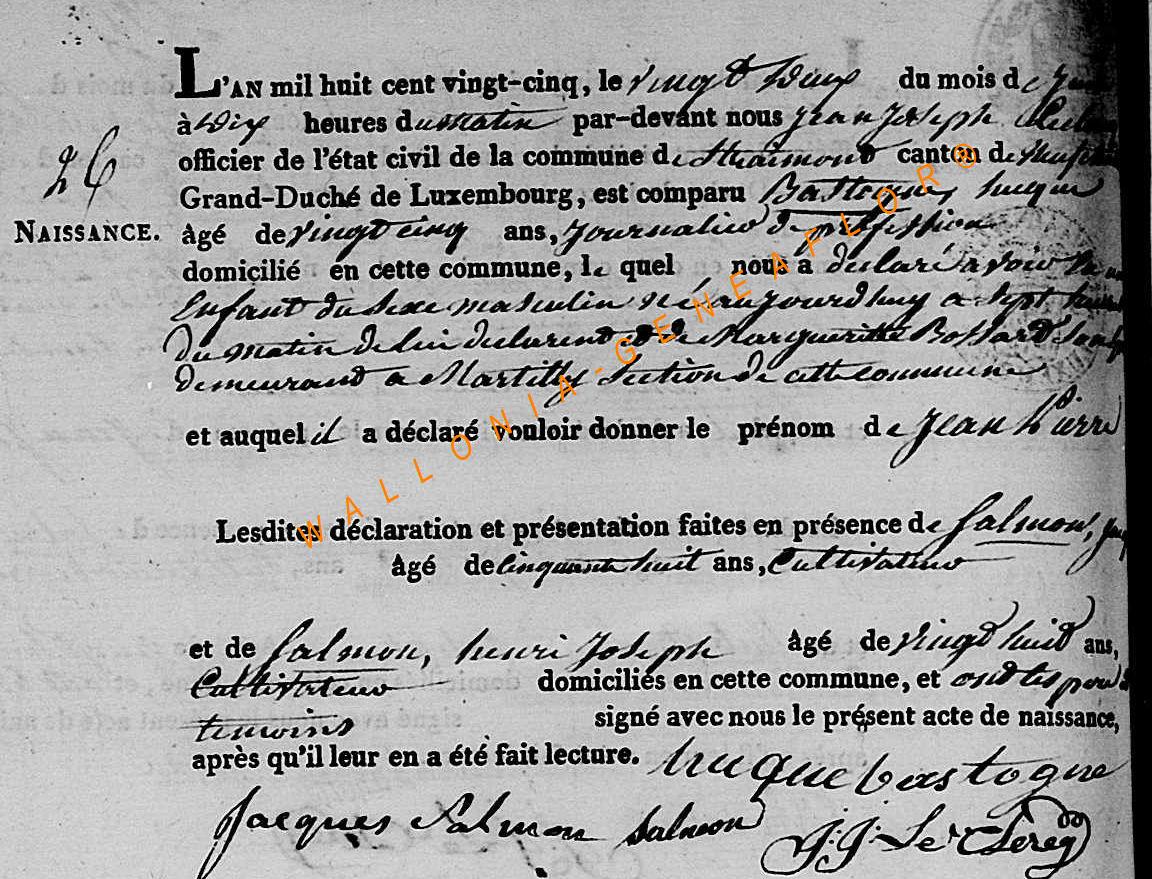 L'AN mil huit cent vingt-cinq, le vingt deux du mois de
à dix heures du matin par-devant nous jean joseph
officier de l'état civil de la commune de Straimont canton de
Grand-Duché de Luxembourg, est comparu Bastogne,
26
NAISSANCE. âgé de vingt cinq ans, journalier de profession
domicilié en cette commune, le quel nous a declaré avoir eu un
Enfant du sexe masculin né aujourdhuy a sept heures
du matin de lui declarent et de Marguerite Bossard
demeurant a Martilly section de cette commune
et auquel il a déclaré vouloir donner le prénom de jean pierre
Lesdites déclaration et présentation faites en présence de Salmon,
âgé de cinquante huit ans, Cultivateur
et de Salmon, henri joseph âgé de vingt huit ans,
Cultivateur domiciliés en cette commune, et ont les
temoins signé avec nous le présent acte de naissance,
après qu'il leur en a été fait lecture. huque bastogne
Jacques Salmon Salmon J: J: Le Clereq
WALLONIA-GENEAFLOR®